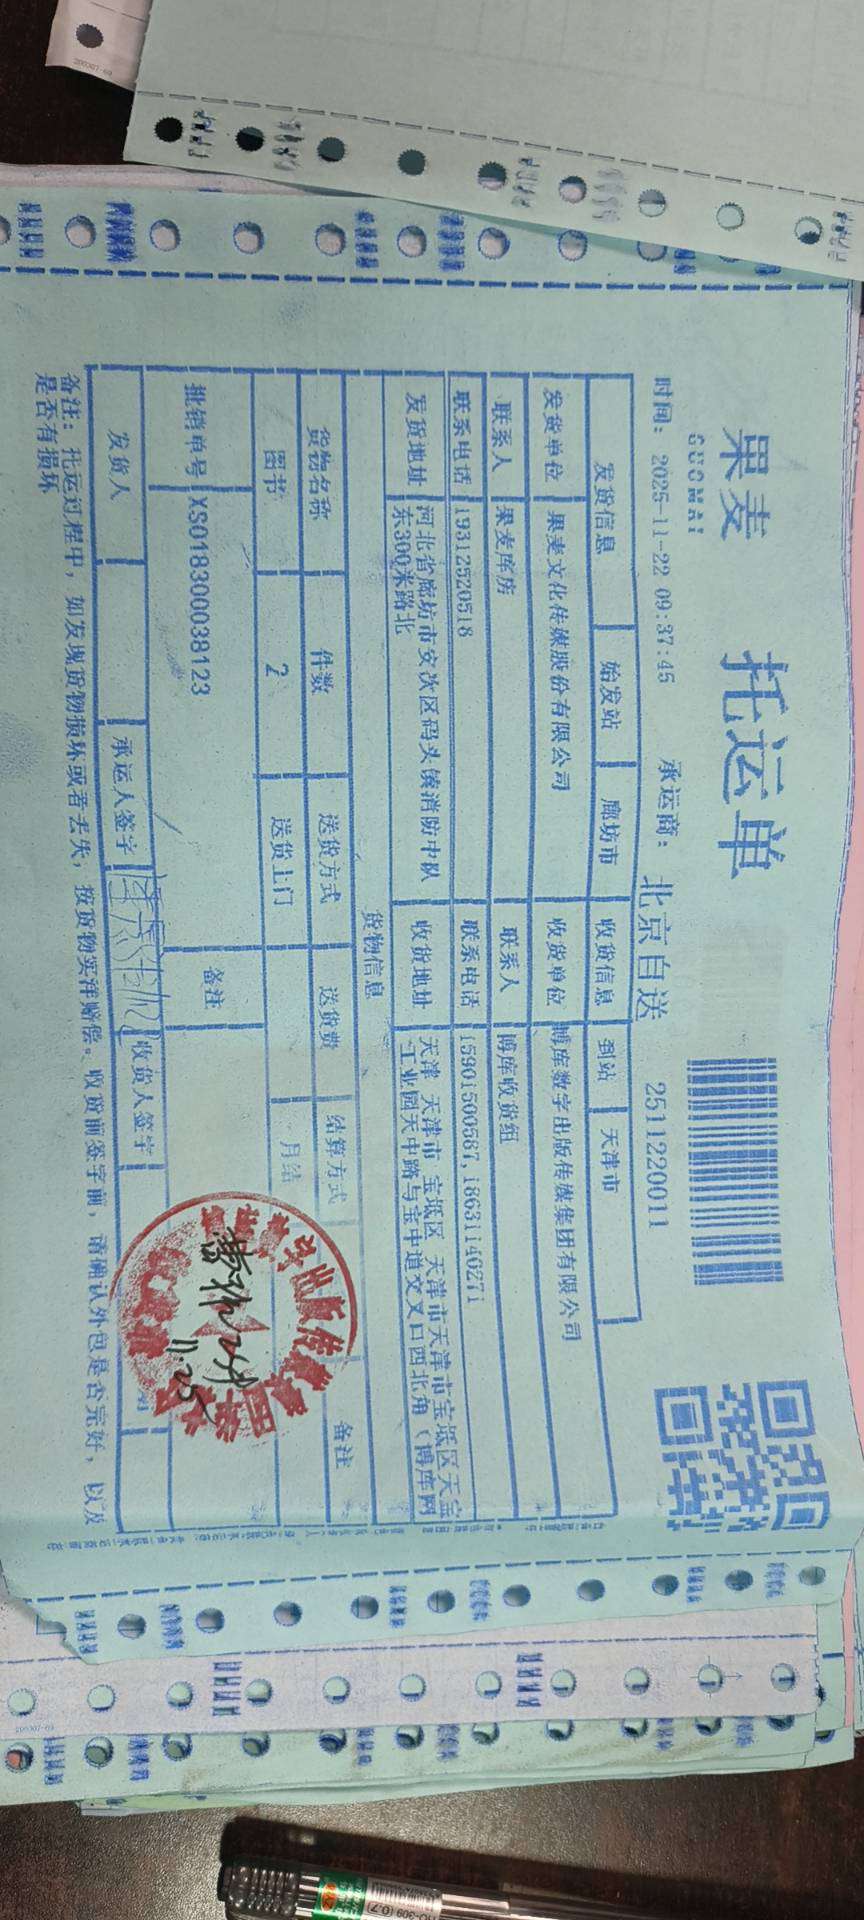 果麦
GUOMAI
托运单
时间: 2025-11-22 09:37:45 承运商: 北京自送 2511220011
发货信息 始发站 廊坊市 收货信息 到站 天津市
发货单位 果麦文化传媒股份有限公司 收货单位 博库数字出版传媒集团有限公司
联系人 果麦库房 联系人 博库收货组
联系电话 19312520518 联系电话 15901500587,18631140271
发货地址 河北省廊坊市安次区码头镇消防中队东300米路北 收货地址 天津 天津市 宝坻区 天津市天津市宝坻区天宝工业园天中路与宝中道交叉口西北角（博库网
货物信息
货物名称 件数 送货方式 送货费 结算方式 备注
图书 2 送货上门 月结
批销单号 XS018300038123 备注
发货人 承运人签字 收货人签字
备注: 托运过程中，如发现货物损坏或者丢失，按货物实洋赔偿。收货前签字前，请确认外包是否完好，以及
是否有损坏
11.25